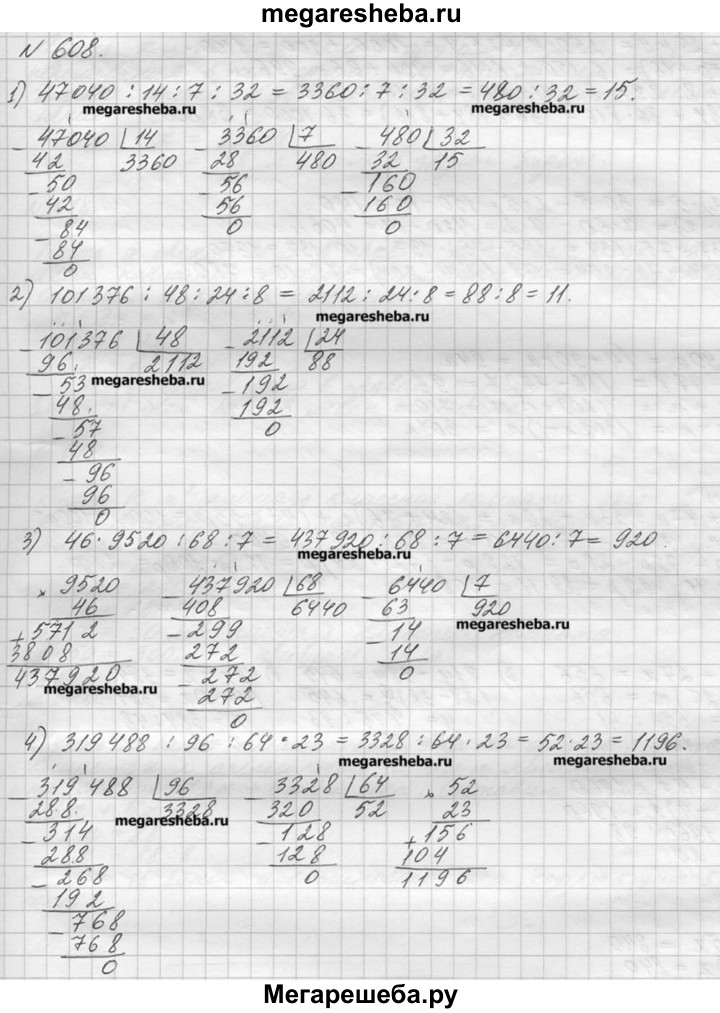 megaresheba.ru
№ 608.
1) 47040 : 14 : 7 : 32 = 3360 : 7 : 32 = 480 : 32 = 15.
megaresheba.ru megaresheba.ru
- 47040 | 14 - 3360 | 7 - 480 | 32
42 3360 28 480 32 15
- 50 - 56 - 160
42 56 160
- 84 0 0
84
0
2) 101376 : 48 : 24 : 8 = 2112 : 24 : 8 = 88 : 8 = 11.
megaresheba.ru
- 101376 | 48 - 2112 | 24
96 2112 192 88
- 53 megaresheba.ru - 192
48 192
- 57 0
48
- 96
96
0
3) 46 · 9520 : 68 : 7 = 437920 : 68 : 7 = 6440 : 7 = 920.
megaresheba.ru
× 9520 - 437920 | 68 - 6440 | 7
46 408 6440 63 920
+ 5712 - 299 - 14 megaresheba.ru
3808 272 14
437920 - 272 0
megaresheba.ru 272
0
4) 319488 : 96 : 64 · 23 = 3328 : 64 · 23 = 52 · 23 = 1196.
megaresheba.ru megaresheba.ru
- 319488 | 96 - 3328 | 64 × 52
288 3328 320 52 23
- 314 megaresheba.ru - 128 + 156
288 128 104
- 268 0 1196
192
- 768
768
0
Мегарешеба.ру